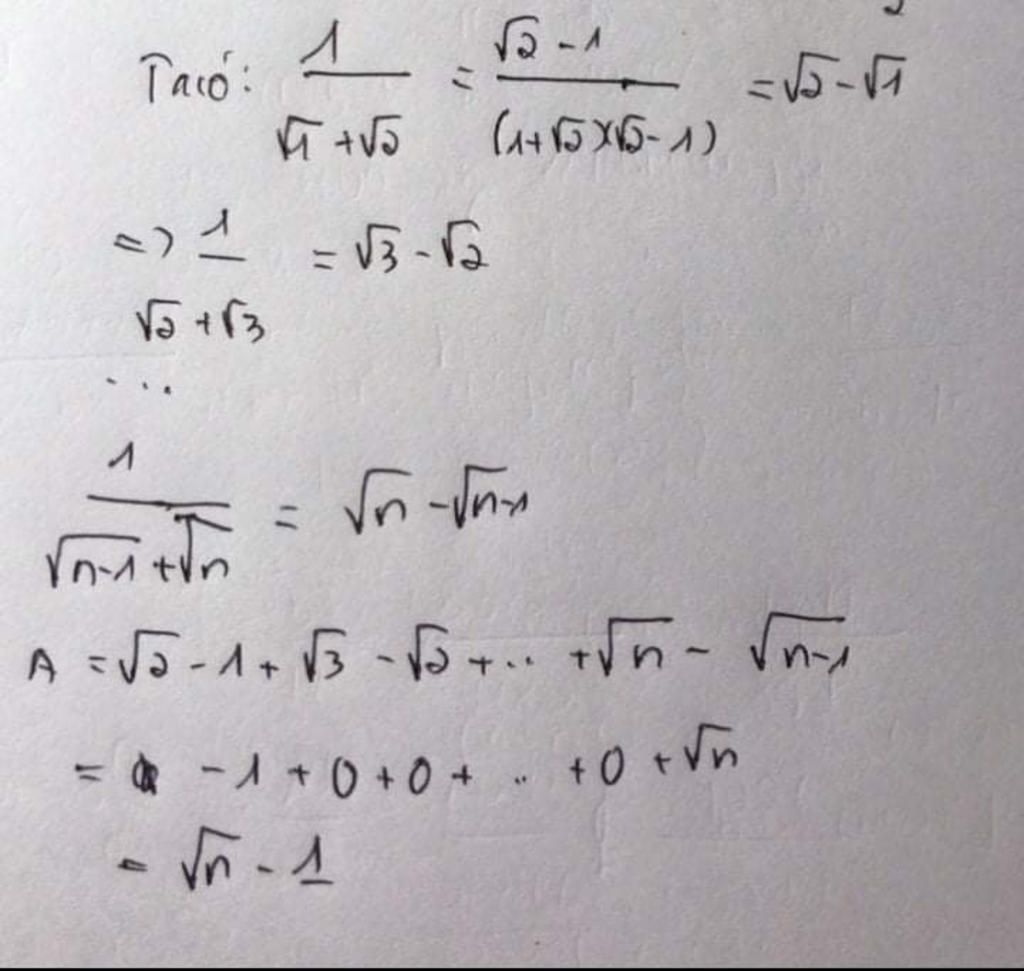 Ta có: 1/(√1 + √2) = (√2 - 1)/((1+√2)(√2-1)) = √2 - √1
=> 1/(√2 + √3) = √3 - √2
...
1/(√(n-1) + √n) = √n - √(n-1)
A = √2 - 1 + √3 - √2 + .. + √n - √(n-1)
= - 1 + 0 + 0 + .. + 0 + √n
= √n - 1